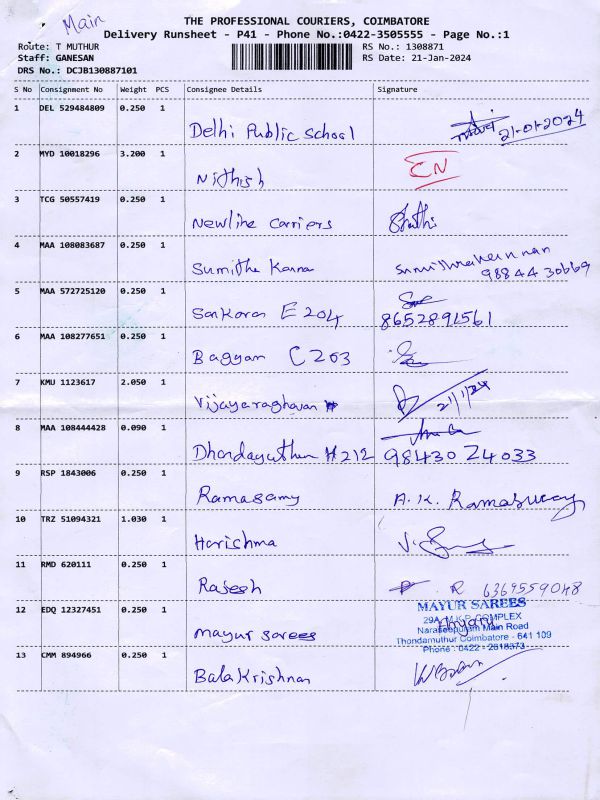 Main
THE PROFESSIONAL COURIERS, COIMBATORE
Delivery Runsheet - P41 - Phone No.:0422-3505555 - Page No.:1
Route: T MUTHUR RS No.: 1308871
Staff: GANESAN RS Date: 21-Jan-2024
DRS No.: DCJB130887101
S No Consignment No Weight PCS Consignee Details Signature
1 DEL 529484809 0.250 1 Delhi Public School 21-01-2024
2 MYD 10018296 3.200 1 Nithish CN
3 TCG 50557419 0.250 1 Newline Carriers
4 MAA 108083687 0.250 1 Sumitha Kanna
98844 30669
5 MAA 572725120 0.250 1 Sankaran E 204 8652891561
6 MAA 108277651 0.250 1 Bagyam C 203
7 KMU 1123617 2.050 1 Vijayaraghavan 21/1/24
8 MAA 108444428 0.090 1 H212 98430 24033
9 RSP 1843006 0.250 1 Ramasamy A.K. Ramasway
10 TRZ 51094321 1.030 1 Harishma
11 RMD 620111 0.250 1 Rajesh R 6369559048
12 EDQ 12327451 0.250 1 mayur sarees
MAYUR SAREES
29A, M.K.P. COMPLEX
Naraseepuram Main Road
Thondamuthur Coimbatore - 641 109
Phone : 0422 - 2618373
13 CMM 894966 0.250 1 Bala Krishnan